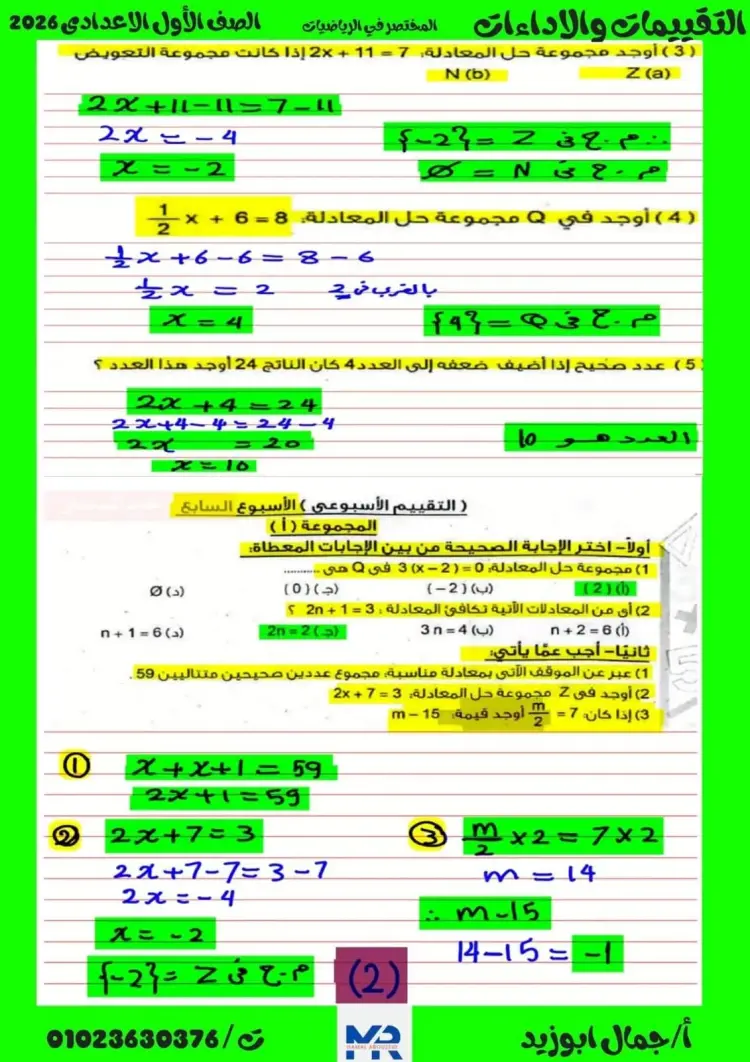 التقييمات والاداءات المختصر في الرياضيات الصف الأول الاعدادى 2026
(3) أوجد مجموعة حل المعادلة: 2x + 11 = 7 إذا كانت مجموعة التعويض
Z (a) N (b)
2x+11-11=7-11
2x = -4
∴ م.ح فى Z = {-2}
x = -2
م.ح فى N = Ø
(4) أوجد في Q مجموعة حل المعادلة: 1/2 x + 6 = 8
1/2 x + 6 - 6 = 8 - 6
1/2 x = 2 بالضرب فى 2
x = 4
م.ح فى Q = {4}
(5) عدد صحيح إذا أضيف ضعفه إلى العدد 4 كان الناتج 24 أوجد هذا العدد ؟
2x + 4 = 24
2x+4-4=24-4
2x = 20
العدد هو 10
x = 10
(التقييم الأسبوعى) الأسبوع السابع
المجموعة (أ)
أولاً- اختر الإجابة الصحيحة من بين الإجابات المعطاة:
1) مجموعة حل المعادلة: 3 (x - 2) = 0 فى Q هى ...........
(أ) {2} (ب) {-2} (جـ) {0} (د) Ø
2) أى من المعادلات الآتية تكافئ المعادلة: 2n + 1 = 3 ؟
(أ) n + 2 = 6 (ب) 3 n = 4 (جـ) 2n = 2 (د) n + 1 = 6
ثانيًا- أجب عمّا يأتي:
1) عبر عن الموقف الآتى بمعادلة مناسبة: مجموع عددين صحيحين متتاليين 59.
2) أوجد فى Z مجموعة حل المعادلة: 2x + 7 = 3
3) إذا كان: m/2 = 7 أوجد قيمة: m - 15
① x+x+1 = 59
2x+1 = 59
② 2x+7=3
2x+7-7=3-7
2x = -4
x = -2
م.ح فى Z = {-2}
③ m/2 ×2 = 7×2
m = 14
∴ m-15
14-15 = -1
(2)
أ/جمال ابوزيد
MR
ت/01023630376